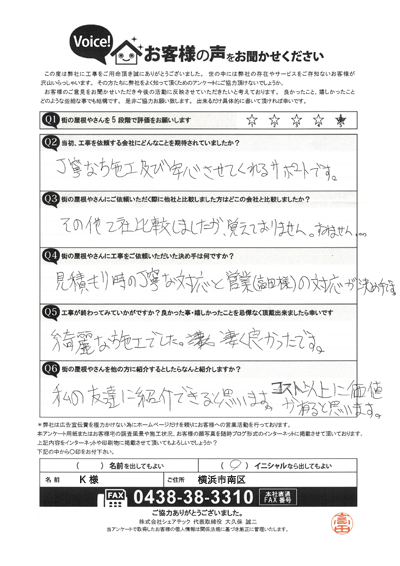 Voice!
お客様の声をお聞かせください
この度は弊社に工事をご用命頂き誠にありがとうございました。 世の中には弊社の存在やサービスをご存知ないお客様が
沢山いらっしゃいます。 その方たちに弊社をよく知って頂くためのアンケートにご協力頂けないでしょうか。
お客様のご意見をお聞かせいただき今後の活動に反映させていただきたいと考えております。 良かったこと、嬉しかったこと
どのような些細な事でも結構です。 是非ご協力お願い致します。 出来るだけ具体的に書いて頂ければ幸いです。
Q1 街の屋根やさんを5段階で評価をお願いします ☆ ☆ ☆ ☆ ★
Q2 当初、工事を依頼する会社にどんなことを期待されていましたか?
丁寧なお施工及び安心させてくれるサポートです。
Q3 街の屋根やさんにご依頼いただく際に他社と比較しました方はどこの会社と比較しましたか?
その他2社比較しましたが、覚えておりません。すみません…
Q4 街の屋根やさんに工事をご依頼いただいた決め手は何ですか?
見積もり時の丁寧な対応と営業(富田様)の対応が決め手
Q5 工事が終わってみていかがですか?良かった事・嬉しかったことを忌憚なく頂戴出来ましたら幸いです
綺麗なお施工でした。凄く良かったです。
Q6 街の屋根やさんを他の方に紹介するとしたらなんと紹介しますか?
私の友達に紹介できると思います。コスト以上に価値
が有ると思います。
*弊社は広告宣伝費を極力かけない為にホームページだけを頼りにお客様への営業活動を行っております。
*本アンケート用紙またはお客様宅の調査風景や施工状況、お客様の顔写真を随時ブログ形式のインターネットに掲載させて頂いております。
上記内容をインターネットや印刷物に掲載させて頂いてもよろしいでしょうか?
下記の中から○印をお付下さい。
( ) 名前を出してもよい ( ○ ) イニシャルなら出してもよい
名 前 K 様 ご住所 横浜市南区
FAX 0438-38-3310 本社直通 FAX番号
ご協力ありがとうございました。
株式会社シェアテック 代表取締役 大久保 誠二
当アンケートで取得したお客様の個人情報は関係法規に基づき厳正に管理いたします。
富田